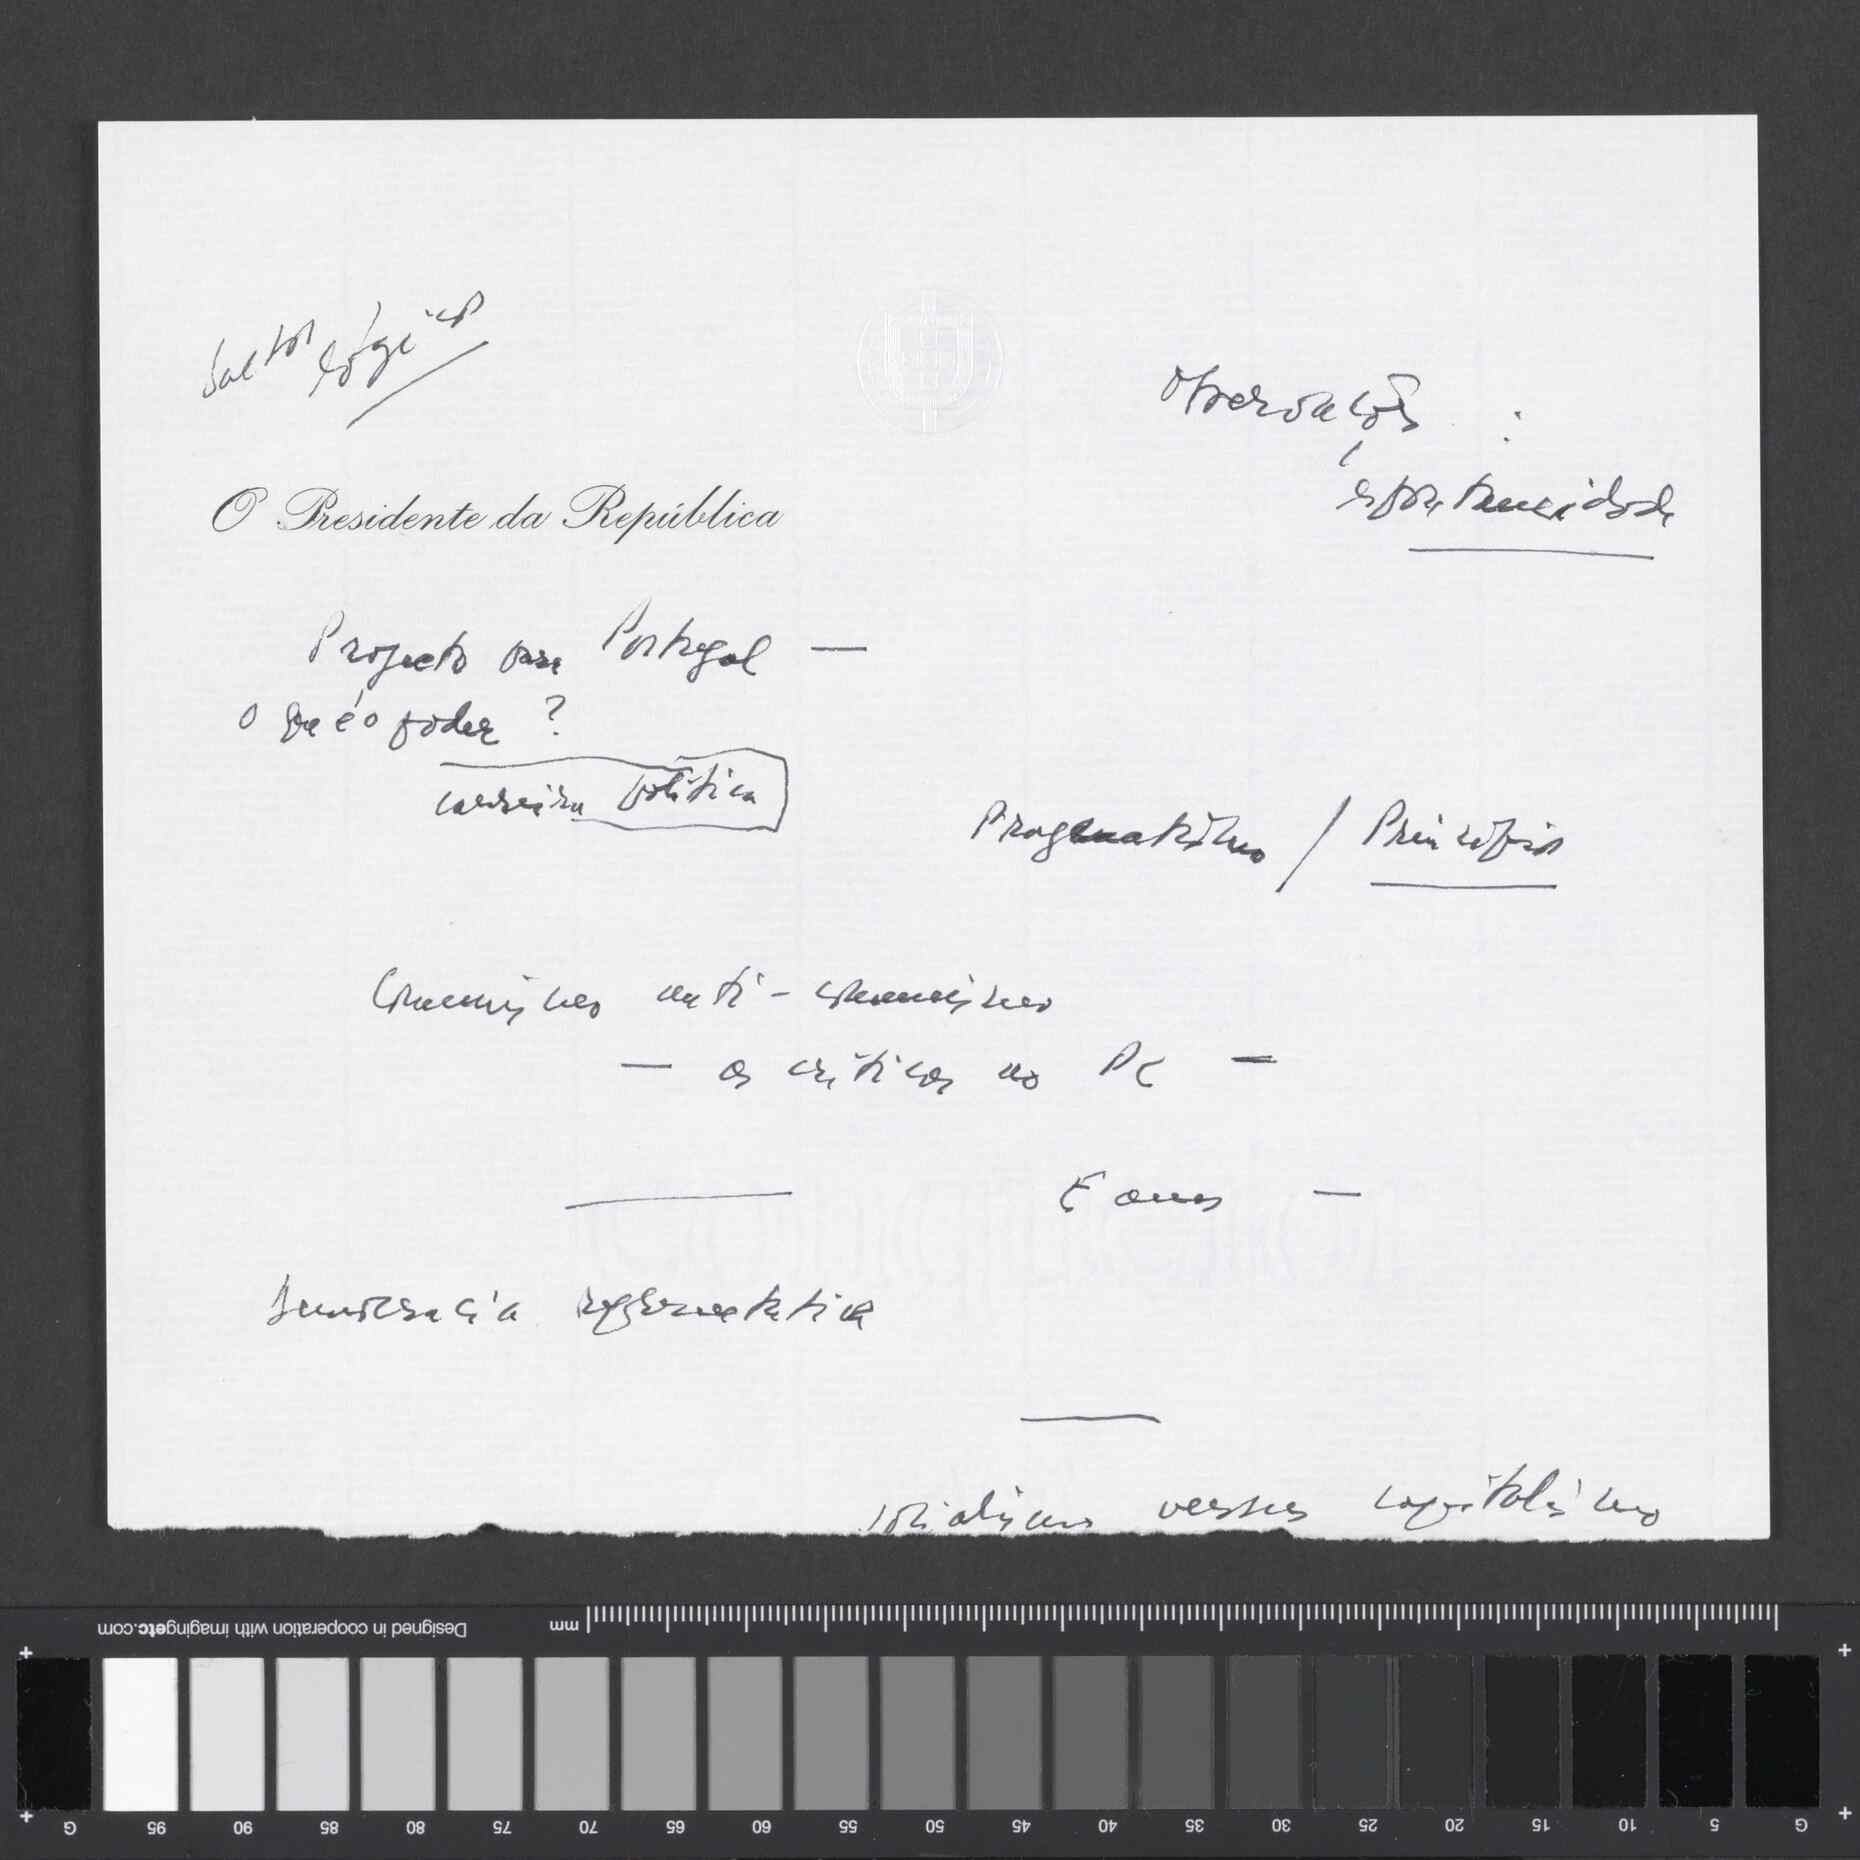 Saltos lógicos
Observações :
espontaneidade
O Presidente da República
Projecto para Portugal —
O que é o poder ?
carreira política
Pragmatismo / Princípios
Comunismo anti-comunismo
— as críticas ao PC —
Eanes —
Democracia representativa
socialismo versus capitalismo
mm
Designed in cooperation with imagingetc.com
G 95 90 85 80 75 70 65 60 55 50 45 40 35 30 25 20 15 10 5 G